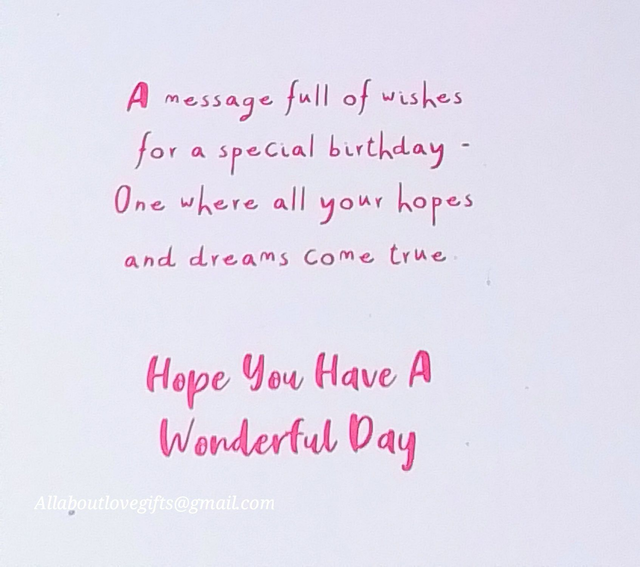 A message full of wishes
for a special birthday -
One where all your hopes
and dreams come true.
Hope You Have A
Wonderful Day
Allaboutlovegifts@gmail.com